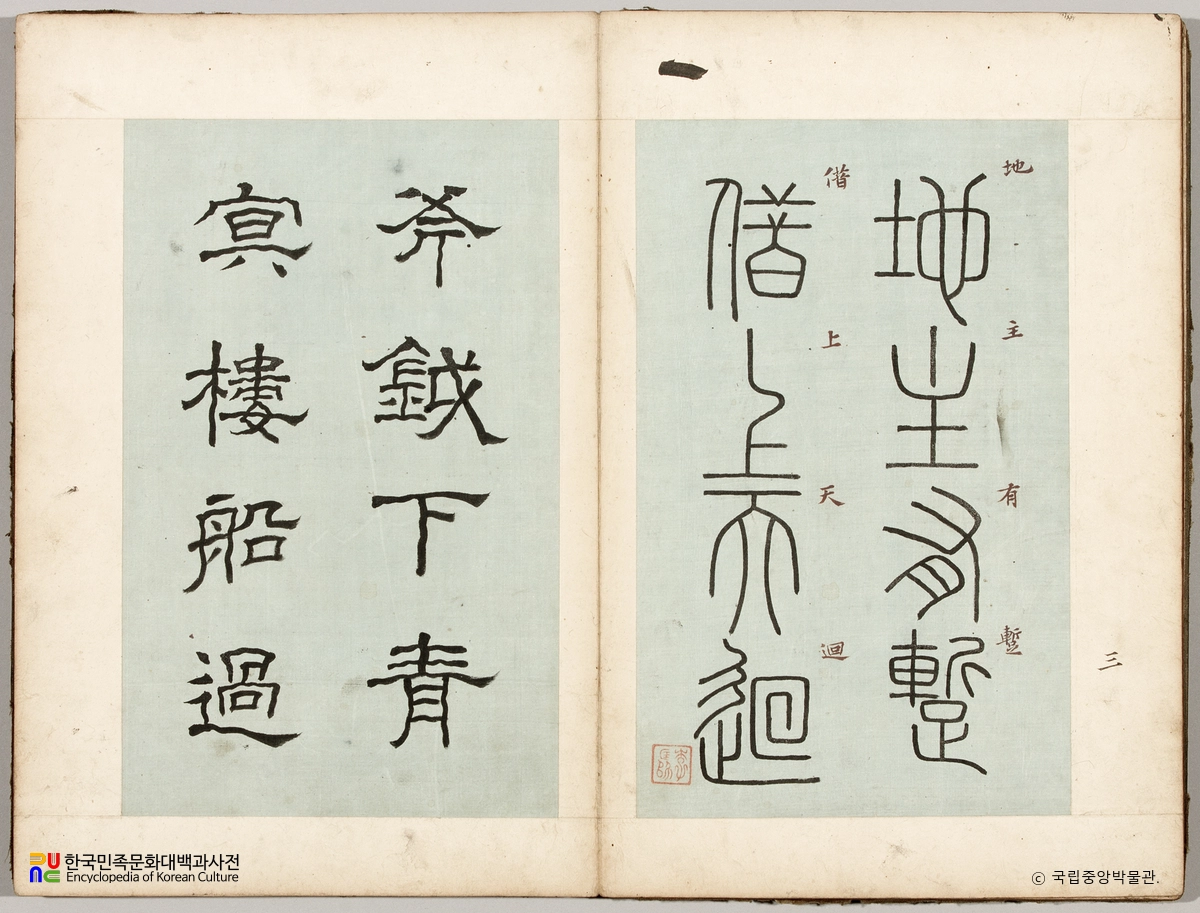 三
地主有蹔
地主有蹔
借上天迴
借上天迴
斧鉞下青
冥樓船過
한국민족문화대백과사전
Encyclopedia of Korean Culture
ⓒ 국립중앙박물관.